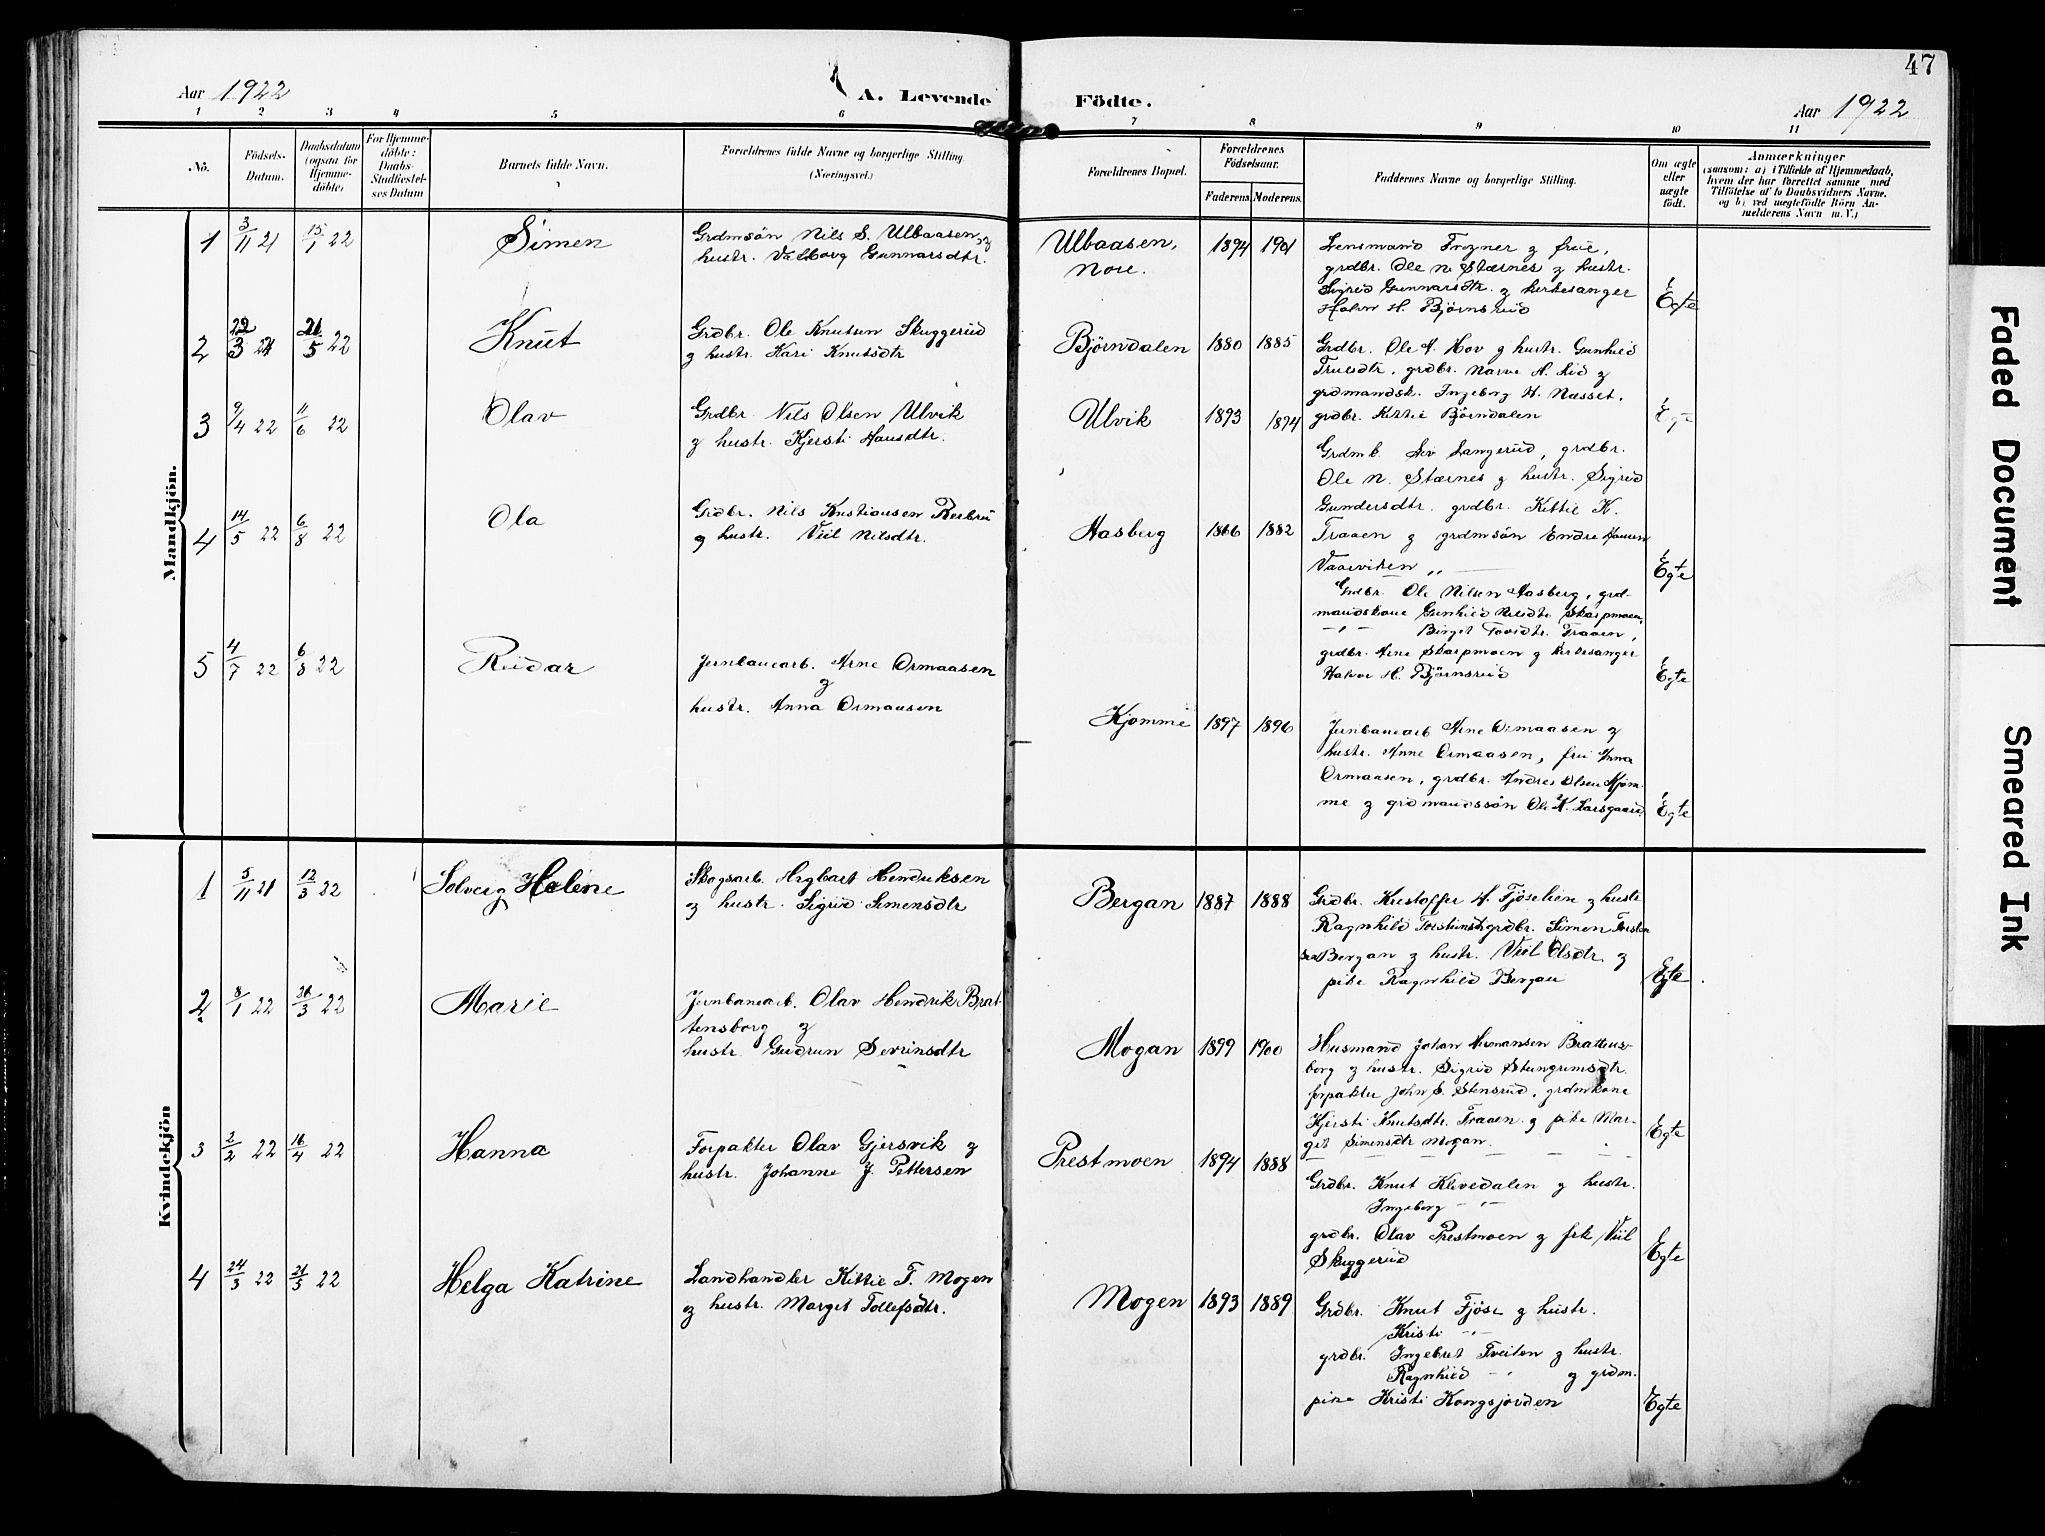 47
Aar 1922
A. Levende Födte.
Aar 1922
1 2 3 4 5 6 7 8 9 10 11
No.
Födsels-Datum.
Daabsdatum (ogsaa for Hjemmedöbte)
For Hjemmedöbte: Daabs-Stadfæstelses Datum
Barnets fulde Navn.
Forældrenes fulde Navne og borgerlige Stilling.
(Næringsvei.)
Forældrenes Bopæl.
Forældrenes Födselsaar.
Faderens Moderens.
Faddernes Navne og borgerlige Stilling.
Om ægte eller uægte födt.
Anmærkninger
(saasom: a) i Tilfælde af Hjemmedaab,
hvem der har forrettet samme med
Tilföielse af to Daabsvidners Navne.
og b) ved uægtefödte Börn An-
melderens Navn m. V.)
Mandkjön.
1 3/11 21 15/1 22 Simen
Grdmsön Nils S. Ulbaasen og
hustr. Valborg Gunnarsdtr.
Ulbaasen,
Nore.
1894 1901
Lensmand Frogner og frue,
grdbr. Ole N. Stærnes og hustr.
Sigrid Gunnarsdtr. og kirkesanger
H. Björnsrud
Egte
2 22/3 21/5 22 Knut
Grdbr. Ole Knutsen Skuggerud
og hustr. Kari Knutsdtr
Björndalen 1880 1885
Grdbr. Ole A. Hov og hustr. Gunhild
Truesdtr, grdbr. Narve A. Lid og
grdmandsk. Ingeborg H. Næsset,
grdbr. Kittil Björndalen
3 9/4 22 11/6 22 Olav
Grdbr. Nils Olsen Ulvik
og hustr. Kjersti Hansdtr.
Ulvik 1893 1894
Grdmk. Liv Langerud, grdbr.
Ole N. Stærnes og hustr. Sigrid
Gundersdtr. grdbr. Kittil K.
Traaen og grdmsön Endre Hansen
Vaaeviken ,,
Egte
4 14/5 22 6/8 22 Ola
Grdbr. Nils Kristiansen
og hustr. Viil Nilsdtr.
Aasberg 1866 1882
Grdbr. Ole Nilsen Aasberg, grd-
mandskone Gunhild Nilsdtr. Skarpmoen,
Birget Tovsdtr. Traaen,
grdbr. Arne Skarpmoen og kirkesanger
H. Björnsrud
Egte
5 4/7 22 6/8 22 Reidar
Jernbanearb. Arne Ormaasen
og
hustr. Anna Ormaasen
Kjømme 1897 1896
Jernbanearb Arne Ormaasen og
hustr. Anne Ormaasen, frü Anna
Ormaasen, grdbr. Andres Olsen Kjøm-
me og grdmandssön Ole K. Larsgaard,
Egte
Kvindekjön
1 5/11 21 12/3 22 Solveig Helene
Skogsarb. Hendriksen
og hustr. Sigrid Simensdtr
Bergan 1887 1888
Grdbr. Kristoffer H. Fjöselien og hustr
Ragnhild Torsteinsdtr grdbr. Simen Torsten
sen Bergan og hustr. Viil Olsdtr, og
pike Ragnhild Bergan
Egte
2 8/1 22 26/3 22 Marie
Jernbanearb. Olav Hendrik Brat-
tensborg og
hustr. Gudrun Sevrinsdtr
Mogan 1899 1900
Husmand Johan Hermansen Brattens-
borg og hustr. Sigrid Steingrimsdtr.
forpakter John S. Stensrud, grdmkone
Kjersti Knutsdtr. Traaen og pike Mar-
get Simensdtr Mogan.
Egte
3 2/2 22 16/4 22 Hanna
Forpakter Olav Gjersvik og
hustr. Johanne J. Pettersen
Prestmoen 1894 1888
Grdbr. Knut Klevedalen og hustr.
Ingeborg
grdbr. Olav Prestmoen og frk Viil
Skuggerud
Egte
4 24/3 22 21/5 22 Helga Katrine
Landhandler Kittil T. Mogen
og hustr. Marget Tollefsdtr.
Mogen 1893 1889
Grdbr. Knut Fjöse og hustr.
Kristi
grdbr. Ingebret Tveiten og hustr.
Ragnhild og grdm.
pike Kristi Kongsjorden
Egte
Faded Document
Smeared Ink